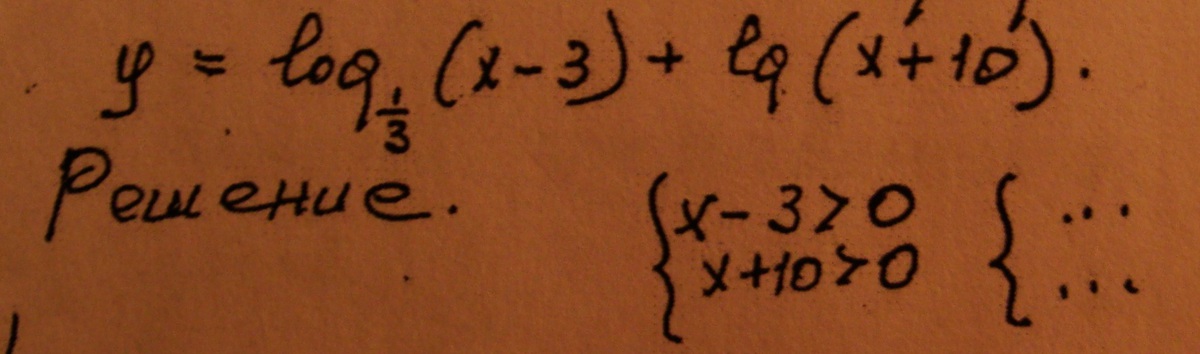 y = log_{1/3} (x - 3) + lg (x + 10).
Решение.
{ x - 3 > 0 { ...
x + 10 > 0 ...